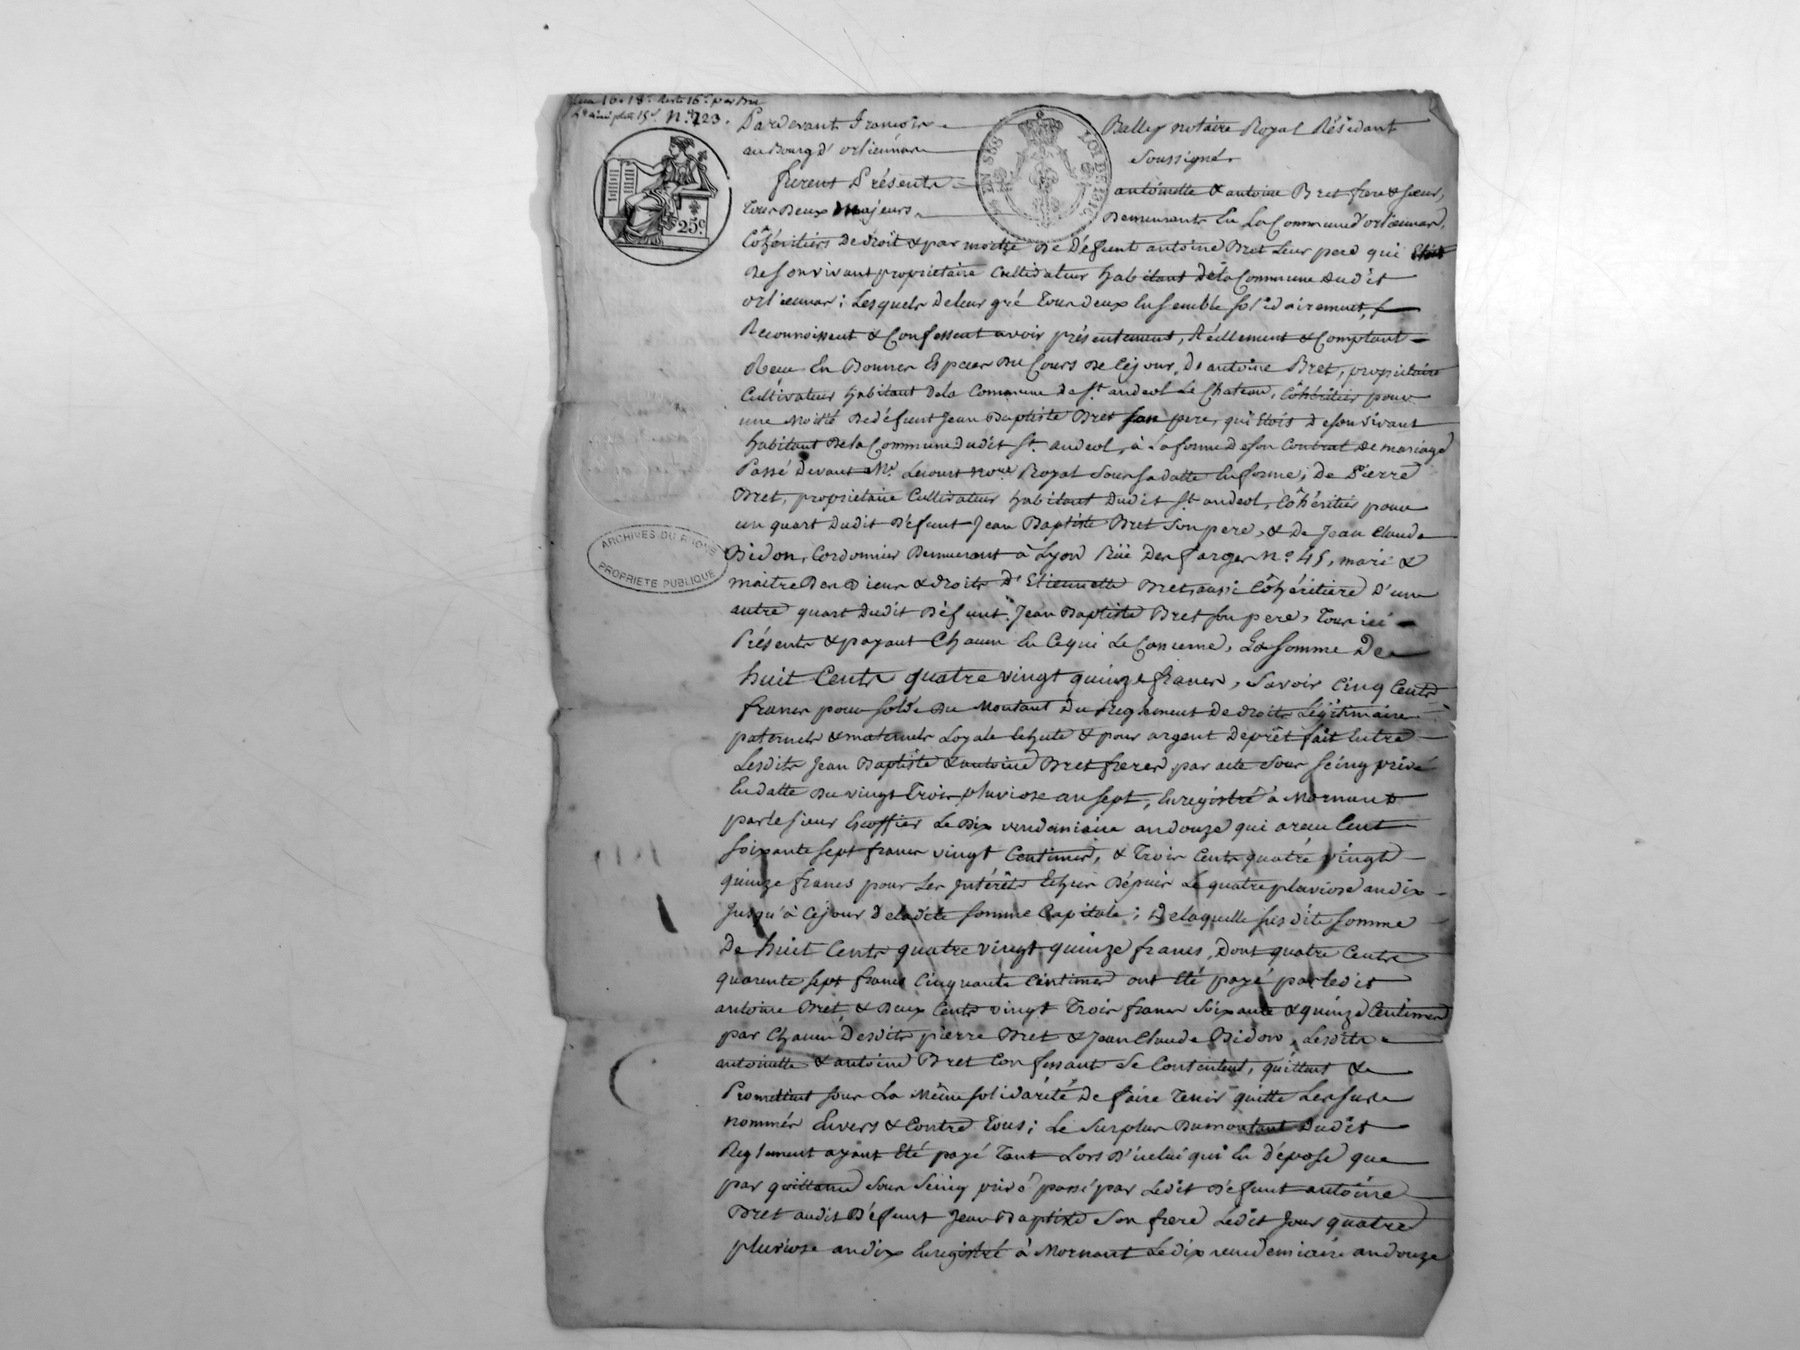 N.° 723.
Pardevant François Bally notaire Royal Résidant
au Bourg d'orliennas soussigné
furent Présents antoinette & antoine Bret frere & sœur,
tous Deux Majeurs Demeurants En la Commune d'orliennas,
Côhéritiers de droit & par moitié De Défunt antoine Bret Leur pere qui Etoit
De son vivant proprietaire Cultivateur habitant dela Commune dudit
orliennas; Lesquels de leur gré tous deux Ensemble solidairement,
Reconnoissent & Confessent avoir présentement, Réellement & Comptant
Reçu En Bonnes Especes Du Cours De Cejour, D'antoine Bret, propriétaire
Cultivateur habitant dela Commune de St. andeol Le Chateau, Côhéritier pour
une Moitié De défunt Jean Baptiste Bret son pere, qui Etoit De son vivant
habitant De la Commune dudit St. andeol, à La forme De son Contrat De mariage
Passé devant Me. Lecourt nore. Royal Sous sa datte En forme; De Pierre
Bret, proprietaire Cultivateur habitant Dudit St. andeol, Côhéritier pour
un quart Dudit Défunt Jean Baptiste Bret Son pere, & De Jean Claude
Bidon, Cordonnier Demeurant à Lyon Rüe Des farges N.° 45, mari &
maitre Des Dieux & droits D'Etiennette Bret, aussi Côhéritiere D'un
autre quart Dudit Défunt Jean Baptiste Bret son pere, Tous ici
Présents & payant Chacun En Cequi Le Concerne, La somme De
huit Cents quatre vingt quinze francs, Savoir Cinq Cents
francs pour solde Du Montant Du Reglement De droits Légitimaires
paternels & maternels Loyale Echute & pour argent De prêt fait Entre
Lesdits Jean Baptiste & antoine Bret freres par acte Sous Seing privé
En datte Du vingt Trois pluviose an sept, Enregistré à Mornant
par le sieur Escoffier Le Dix vendemiaire an douze qui a reçu Cent
Soixante sept francs vingt Centimes, & Trois Cents quatre vingt
quinze francs pour Les Intérêts Echus Dépuis Le quatre pluviose an dix
Jusqu'à Cejour De ladite somme Capitale; De laquelle susdite somme
De huit Cents quatre vingt quinze francs, Dont quatre Cents
quarente sept francs Cinquante Centimes ont Eté payé par ledit
antoine Bret & Deux Cents vingt Trois francs Soixante & quinze Centimes
par Chacun Desdits pierre Bret & Jean Claude Bidon, Lesdits
antoinette & antoine Bret Confessant Se Contentent, quittent &
Promettent sous La Même solidarité De faire Tenir quitte Les sus
nommés Envers & Contre Tous; Le Surplus Du montant Dudit
Reglement ayant Eté payé Tant Lors D'icelui qui En dépose que
par quittance Sous Seing privé passé par Ledit Défunt antoine
Bret audit Défunt Jean Baptiste Son frere Ledit Jour quatre
pluviose an dix Enregistré à Mornant Le dix vendemiaire an douze
25c.
LOI DE 1816
ARCHIVES DU RHONE
PROPRIETE PUBLIQUE